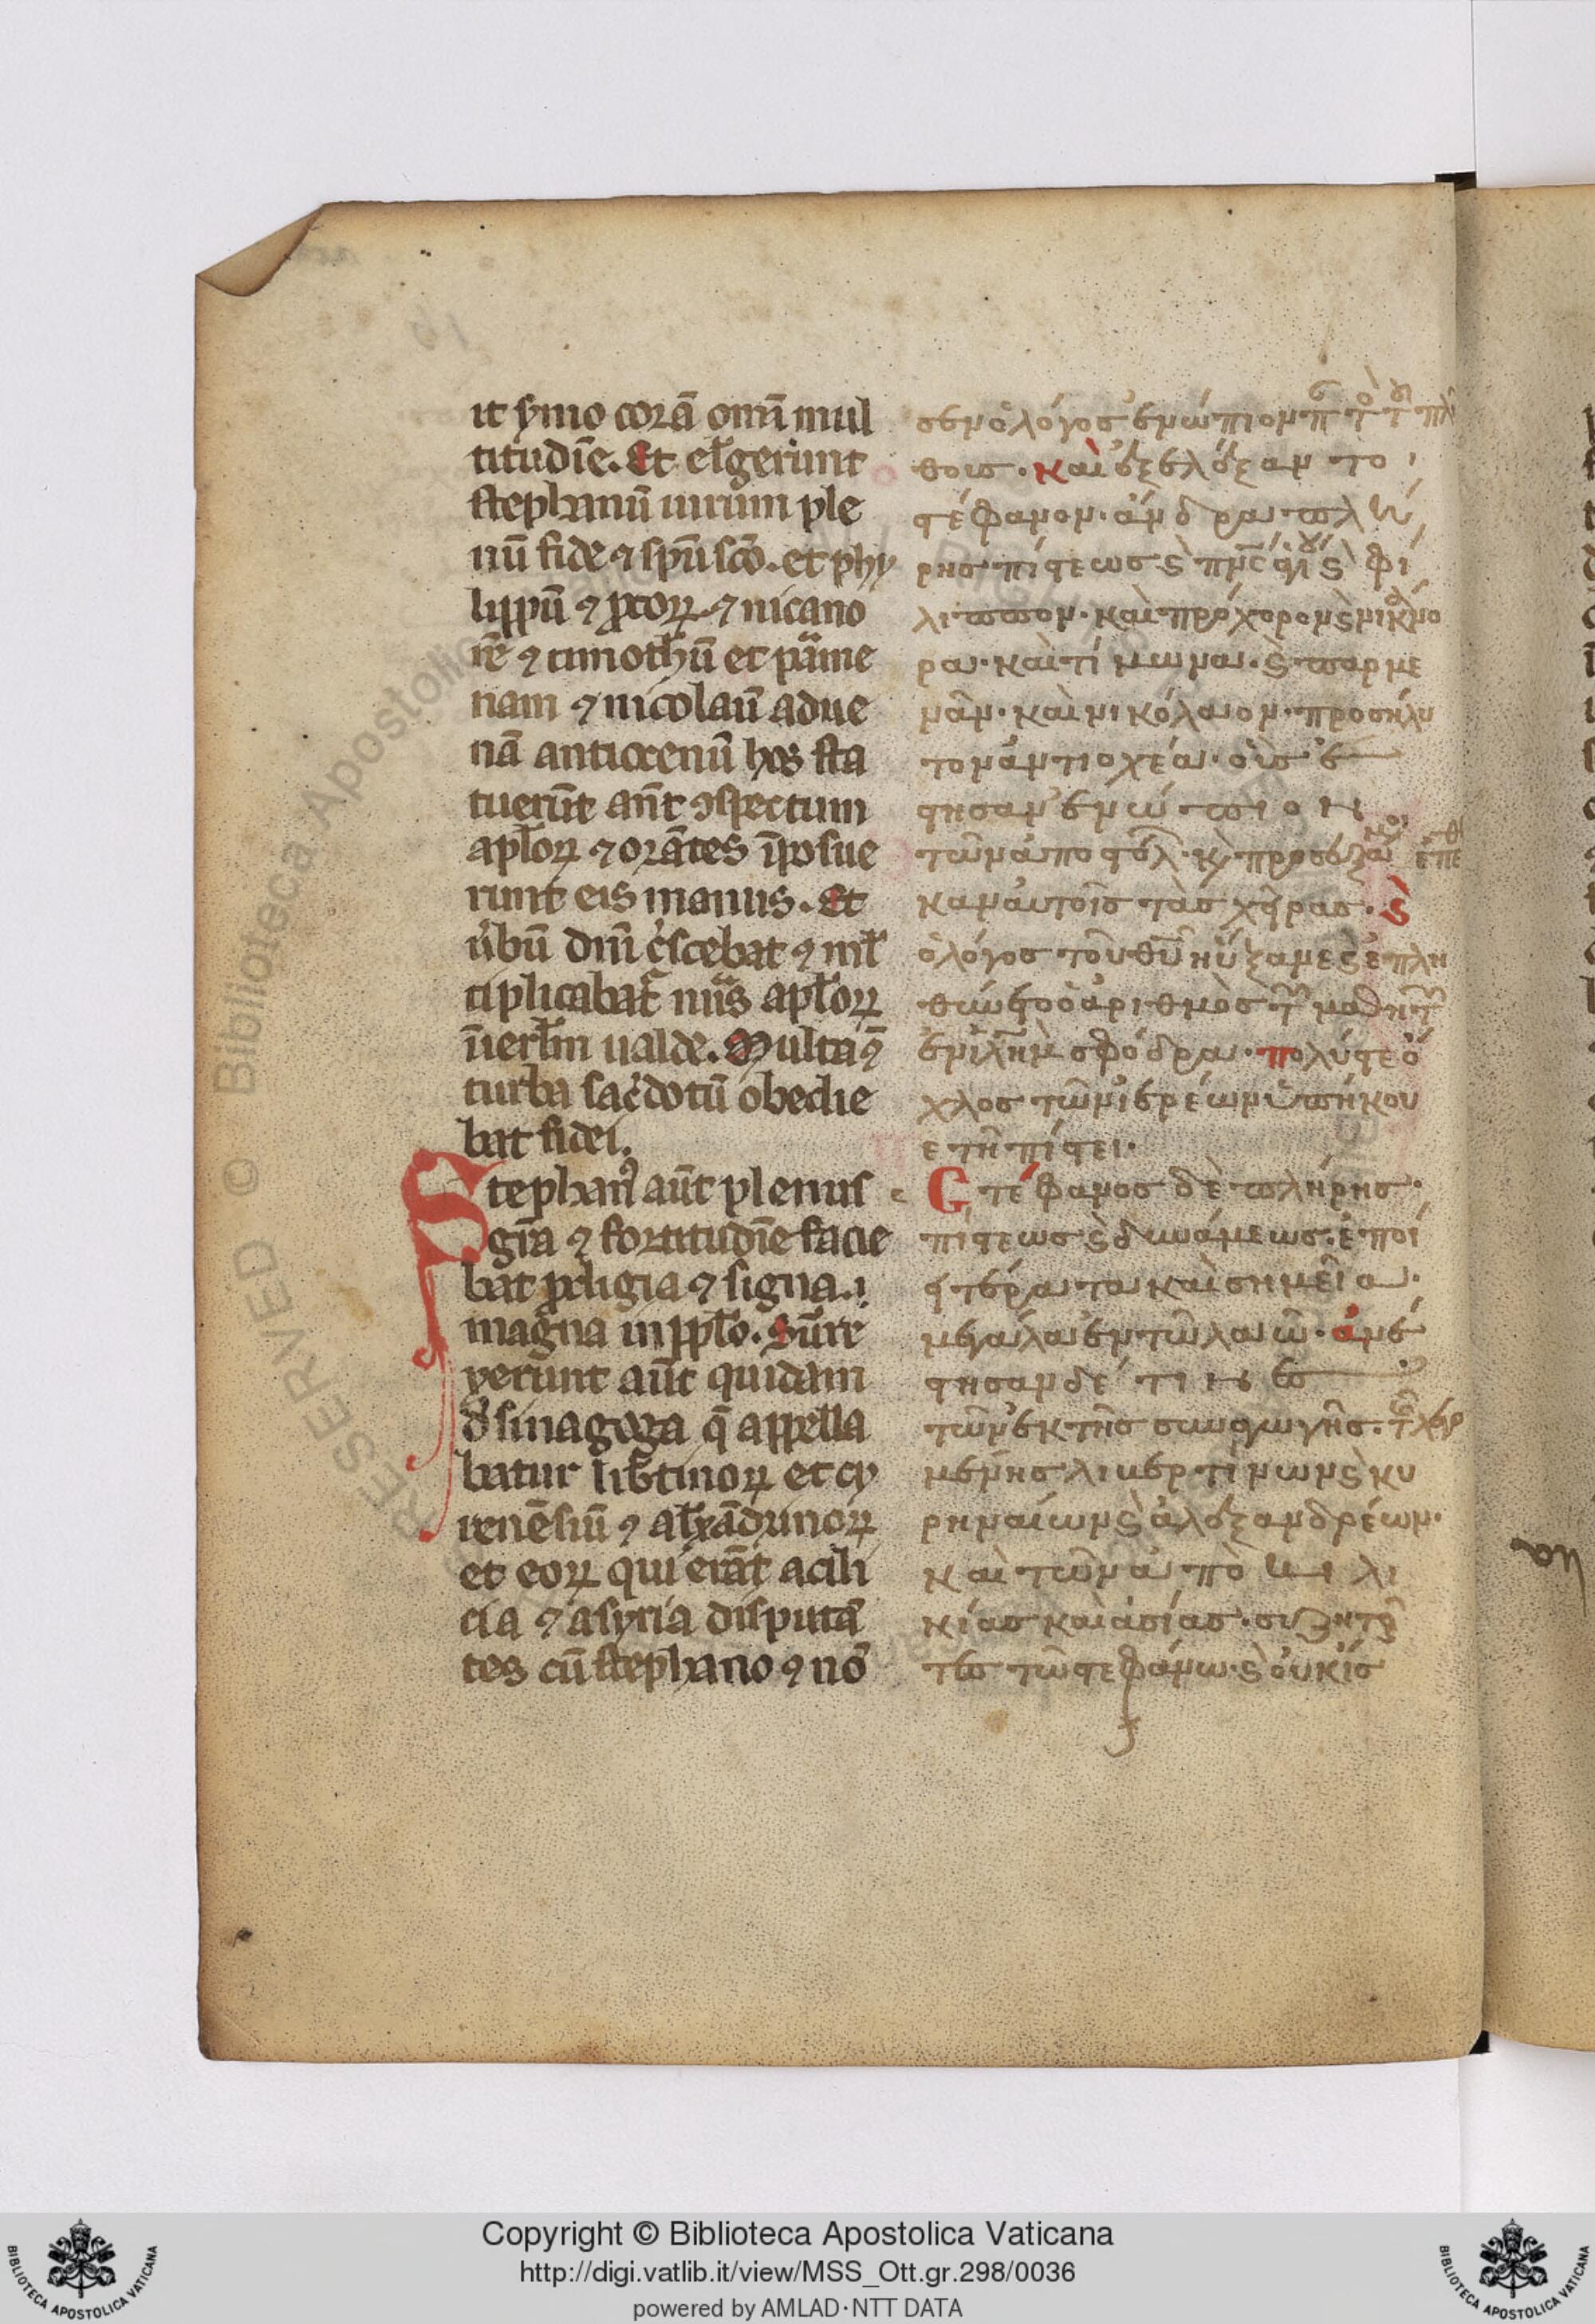 it s̾mo corā om̄i mul
titudīe. Et el̄gerunt
stephanū uirum ple
nū fide ⁊ spū sc̄o. et phy
lippū ⁊ ꝓcorꝝ ⁊ nicano
rē ⁊ timoth̄ū et pᵃme
nam ⁊ nicolaū adue
nā antiocenū hos sta
tuerūt an̄t ꝯspectum
apl̄oꝝ ⁊ orātes īposue
runt eis manus. Et
u̾bū dn̄i c̾scebat ⁊ ml̄
tiplicabat᷑ nūs apl̄oꝝ
ī ierl̄m ualde. Multa ⁊
turba sac̾dotū obedie
bat fidei.
Stephanꝰ aūt plenus
gr̄a ⁊ fortitudīe facie
bat ꝓdigia ⁊ signa.
magna in ppl̄o. Surre
xerunt aūt quidam
d̾ sinagoga q̄ appella
batur lib̾tinoꝝ et cy
renēsiū ⁊ al̄xādrinoꝝ
et eoꝝ qui erāt a cili
cia ⁊ asyria disputā
tes cū stephano ⁊ nō
σεν ὁ λόγος ἐνώπιον π τ τ πλ
θους. καὶ ἐξελέξαντο
στέφανον. ἄνδρα πλή
ρης πίστεως ϛ πνς ἁγι ϛ φί
λιππον. καὶ πρόχορον ϛ νικάνο
ρα. καὶ τίμωνα. ϛ παρμε
νᾶν. καὶ νικόλαον. προσήλυ
τον ἀντιοχέα. οὓς ἔ
στησαν ἐνώπιον
τῶν ἀποστόλ. κ προσευξα ἐπέθη
καν αὐτοῖς τὰς χεῖρας. ϛ
ὁ λόγος τοῦ θῦ ηὔξανε ϛ ἐπλη
θύνετο ὁ ἀριθμὸς τ μαθητ
ἐν ιλημ σφόδρα. πολύς τε ὄ
χλος τῶν ἱερέων ὑπήκου
ε τῇ πίστει.
Στέφανος δὲ πλήρης
πίστεως ϛ δυνάμεως. ἐποί
ει τέρατα καὶ σημεῖα.
μεγάλα ἐν τῷ λαῷ. ἀνέ
στησαν δέ τινες
τῶν ἐκ τῆς συναγωγῆς. τ λεγο
μένης λιβερτίνων ϛ κυ
ρηναίων ϛ ἀλεξανδρέων.
καὶ τῶν ἀπὸ κιλι
κίας καὶ ἀσίας. συζητοῦ
τες τῷ στεφάνω. ϛ οὐκ ἴσ
RESERVED © Biblioteca Apostolica
Copyright © Biblioteca Apostolica Vaticana
http://digi.vatlib.it/view/MSS_Ott.gr.298/0036
powered by AMLAD·NTT DATA
BIBLIOTECA APOSTOLICA VATICANA
BIBLIOTECA APOSTOLICA VATICANA